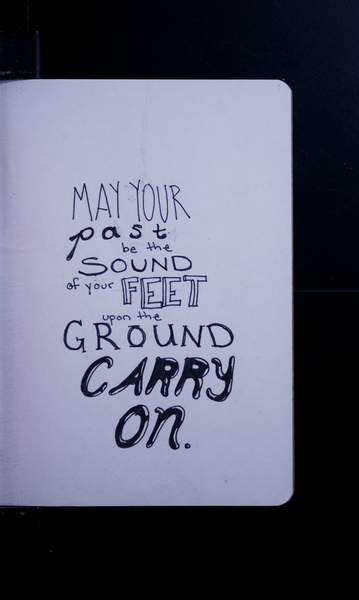 MAY YOUR
past
be the
SOUND
of your FEET
upon the
GROUND
CARRY
ON.